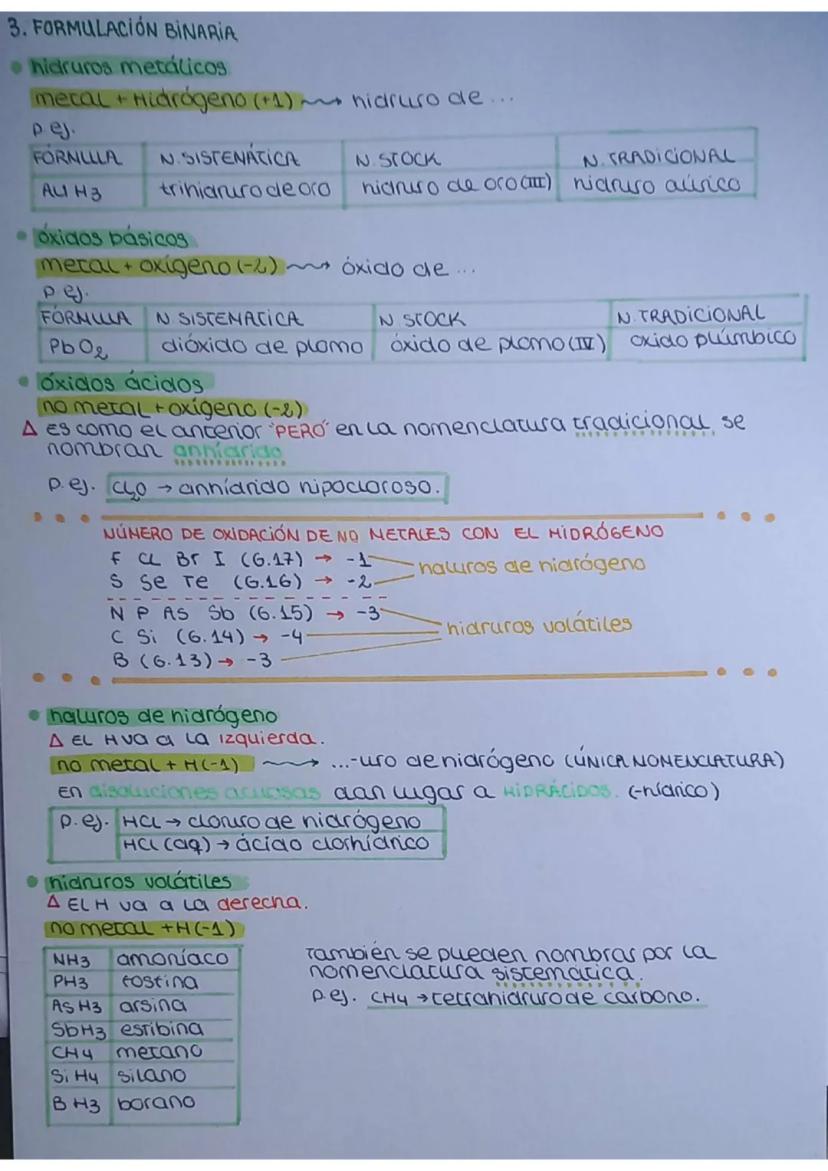 3. FORMULACIÓN BINARIA
• hidruros metálicos
metal + Hidrógeno (+1) ⟿ hidruro de ...
p.ej.
FÓRMULA N. SISTEMÁTICA N. STOCK N. TRADICIONAL
AuH3 trihidruro de oro hidruro de oro (III) hidruro aúrico
• óxidos básicos
metal + oxígeno (-2) ⟿ óxido de ...
p.ej.
FÓRMULA N SISTEMATICA N STOCK N. TRADICIONAL
PbO2 dióxido de plomo óxido de plomo (IV) oxido plúmbico
• óxidos ácidos
no metal + oxígeno (-2)
Δ ES como el anterior "PERO" en la nomenclatura tradicional se
nombran anhídrido
p.ej. Cl2O → anhídrido hipocloroso.
NÚMERO DE OXIDACIÓN DE NO METALES CON EL HIDRÓGENO
F Cl Br I (G.17) → -1
S Se Te (G.16) → -2
haluros de hidrógeno
N P As Sb (G.15) → -3
C Si (G.14) → -4
B (G.13) → -3
hidruros volátiles
• haluros de hidrógeno
Δ EL H va a la izquierda.
no metal + H(-1) ⟿ ...-uro de hidrógeno (ÚNICA NOMENCLATURA)
En disoluciones acuosas dan lugar a HIDRÁCIDOS. (-hídrico)
p.ej. HCl → cloruro de hidrógeno
HCl (aq) → ácido clorhídrico
• hidruros volátiles
Δ EL H va a la derecha.
no metal + H(-1)
NH3 amoníaco
PH3 fosfina
AsH3 arsina
SbH3 estibina
CH4 metano
SiH4 silano
BH3 borano
También se pueden nombrar por la
nomenclatura sistemática.
p.ej. CH4 → tetrahidruro de carbono.